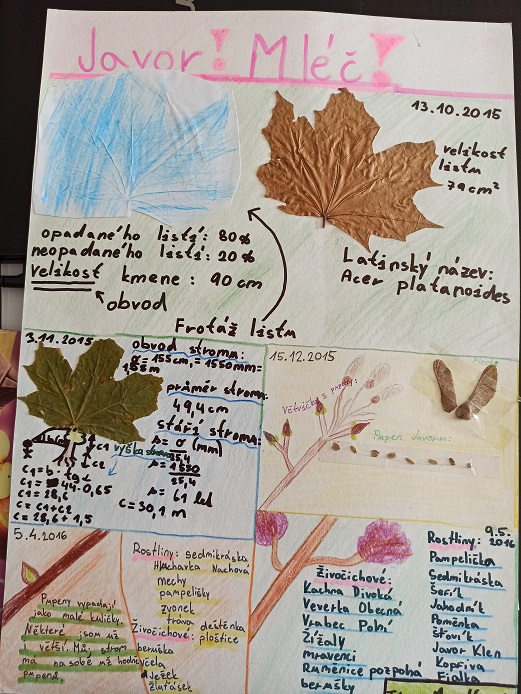 Javor! Mléč!
13.10.2015
velikost
listu
79 cm²
opadaného listí: 80%
neopadaného listí: 20%
velikost kmene: 90 cm
obvod
Latinský název:
Acer platanoides
Frotáž listu
3.11.2015
obvod stromu:
σ = 155cm, = 1550mm=
průměr stromu
49,4cm
stáří stromu:
25,4
61 let
výška stromu
c1
c2
c1 = 28,6
c = c1+c2
c = 28,6 + 1,5
c = 30,1 m
15.12.2015
Větvička s pupeny:
Plody:
Pupen Javoru:
5.4.2016
Pupeny vypadají
jako malé kuličky.
Některé jsou už
větší. Můj strom
má na sobě už hodně
pupenů.
Rostliny: sedmikráska
Hluchavka Nachová
mechy
pampelišky
zvonek
tráva
Živočichové: ploštice
beruška
včela
Ježek
žluťásek
9.5.
2016
Živočichové:
Kachna Divoká
Veverka Obecná
Vrabec Polní
Žížaly
mravenci
Ruměnice pozpohá
berušky
Rostliny:
Pampelička
Sedmikráska
Šeřík
Jahodník
Pomněnka
Šťovík
Javor Klen
Kopřiva
Fialka